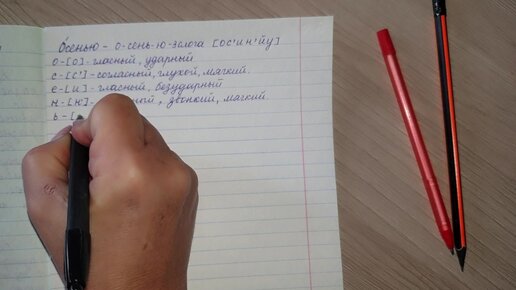 О́сенью – о-сень-ю-3слога [ос'ин'йу]
о-[о]- гласный, ударный
с-[с']-согласный, глухой, мягкий.
е-[и]- гласный, безударный
н-[н']- звонкий, мягкий.
ь-[